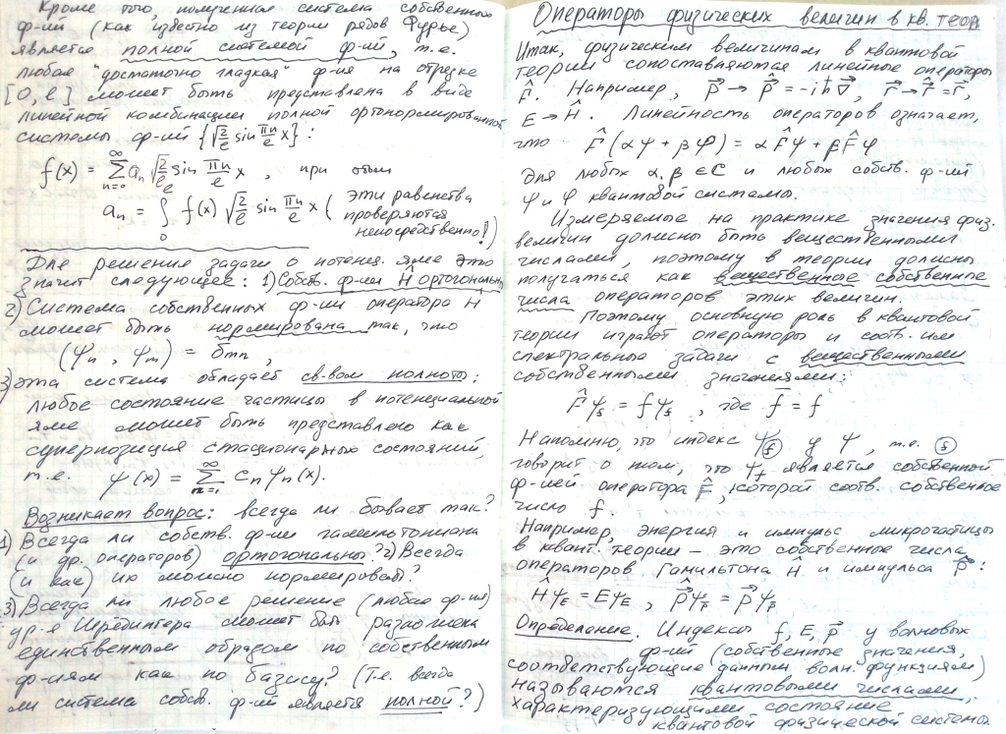 Кроме того, полученная система собственных
ф-ий (как известно из теории рядов Фурье)
является полной системой ф-ий, т.е.
любая "достаточно гладкая" ф-ия на отрезке
[0, l] может быть представлена в виде
линейной комбинации полной ортонормированной
системы ф-ий {√(2/l) sin πn/l x}:
f(x) = ∑_{n=0}^∞ aₙ √(2/l) sin πn/l x, при этом
aₙ = ∫₀^l f(x) √(2/l) sin πn/l x (эти равенства
проверяются
непосредственно!)
Для решения задачи о потенц. яме это
значит следующее: 1) Собств. ф-ии Ĥ ортогональны
2) Система собственных ф-ий оператора H
может быть нормирована так, что
(ψₙ, ψₘ) = δₘₙ,
3) эта система обладает св-вом полноты:
любое состояние частицы в потенциальной
яме может быть представлено как
суперпозиция стационарных состояний,
т.е. ψ(x) = ∑_{n=1}^∞ cₙ ψₙ(x).
Возникает вопрос: всегда ли бывает так?
1) Всегда ли собств. ф-ии гамильтониана
(и др. операторов) ортогональны? 2) Всегда
(и как) их можно нормировать?
3) Всегда ли любое решение (любая ф-ия)
ур-я Шредингера может быть разложена
единственным образом по собственным
ф-иям как по базису? (Т.е. всегда
ли система собств. ф-ий является полной?)
Операторы физических величин в кв. теор
Итак, физическим величинам в квантовой
теории сопоставляются линейные операторы
F̂. Например, p⃗ → p̂⃗ = -iħ∇⃗, r⃗ → r̂⃗ = r⃗,
E → Ĥ. Линейность операторов означает,
что F̂(αψ + βφ) = αF̂ψ + βF̂φ
для любых α, β ∈ C и любых собств. ф-ий
ψ и φ квантовой системы.
Измеряемые на практике значения физ.
величин должны быть вещественными
числами, поэтому в теории должны
получаться как вещественное собственное
числа операторов этих величин.
Поэтому основную роль в квантовой
теории играют операторы и соотв. им
спектральные задачи с вещественными
собственными значениями:
F̂ψ_f = fψ_f, где f̄ = f
Напомню, что индекс ψ_f у ψ, т.е. f
говорит о том, что ψ_f является собственной
ф-ией оператора F̂, которой соотв. собственное
число f.
Например, энергия и импульс микрочастицы
в квант. теории – это собственные числа
операторов Гамильтона Ĥ и импульса p̂⃗:
Ĥψ_E = Eψ_E, p̂⃗ψ_p⃗ = p⃗ψ_p⃗
Определение. Индексы f, E, p⃗ у волновых
ф-ий (собственные значения,
соответствующие данным волн. функциям)
называются квантовыми числами,
характеризующими состояние
квантовой физической системы